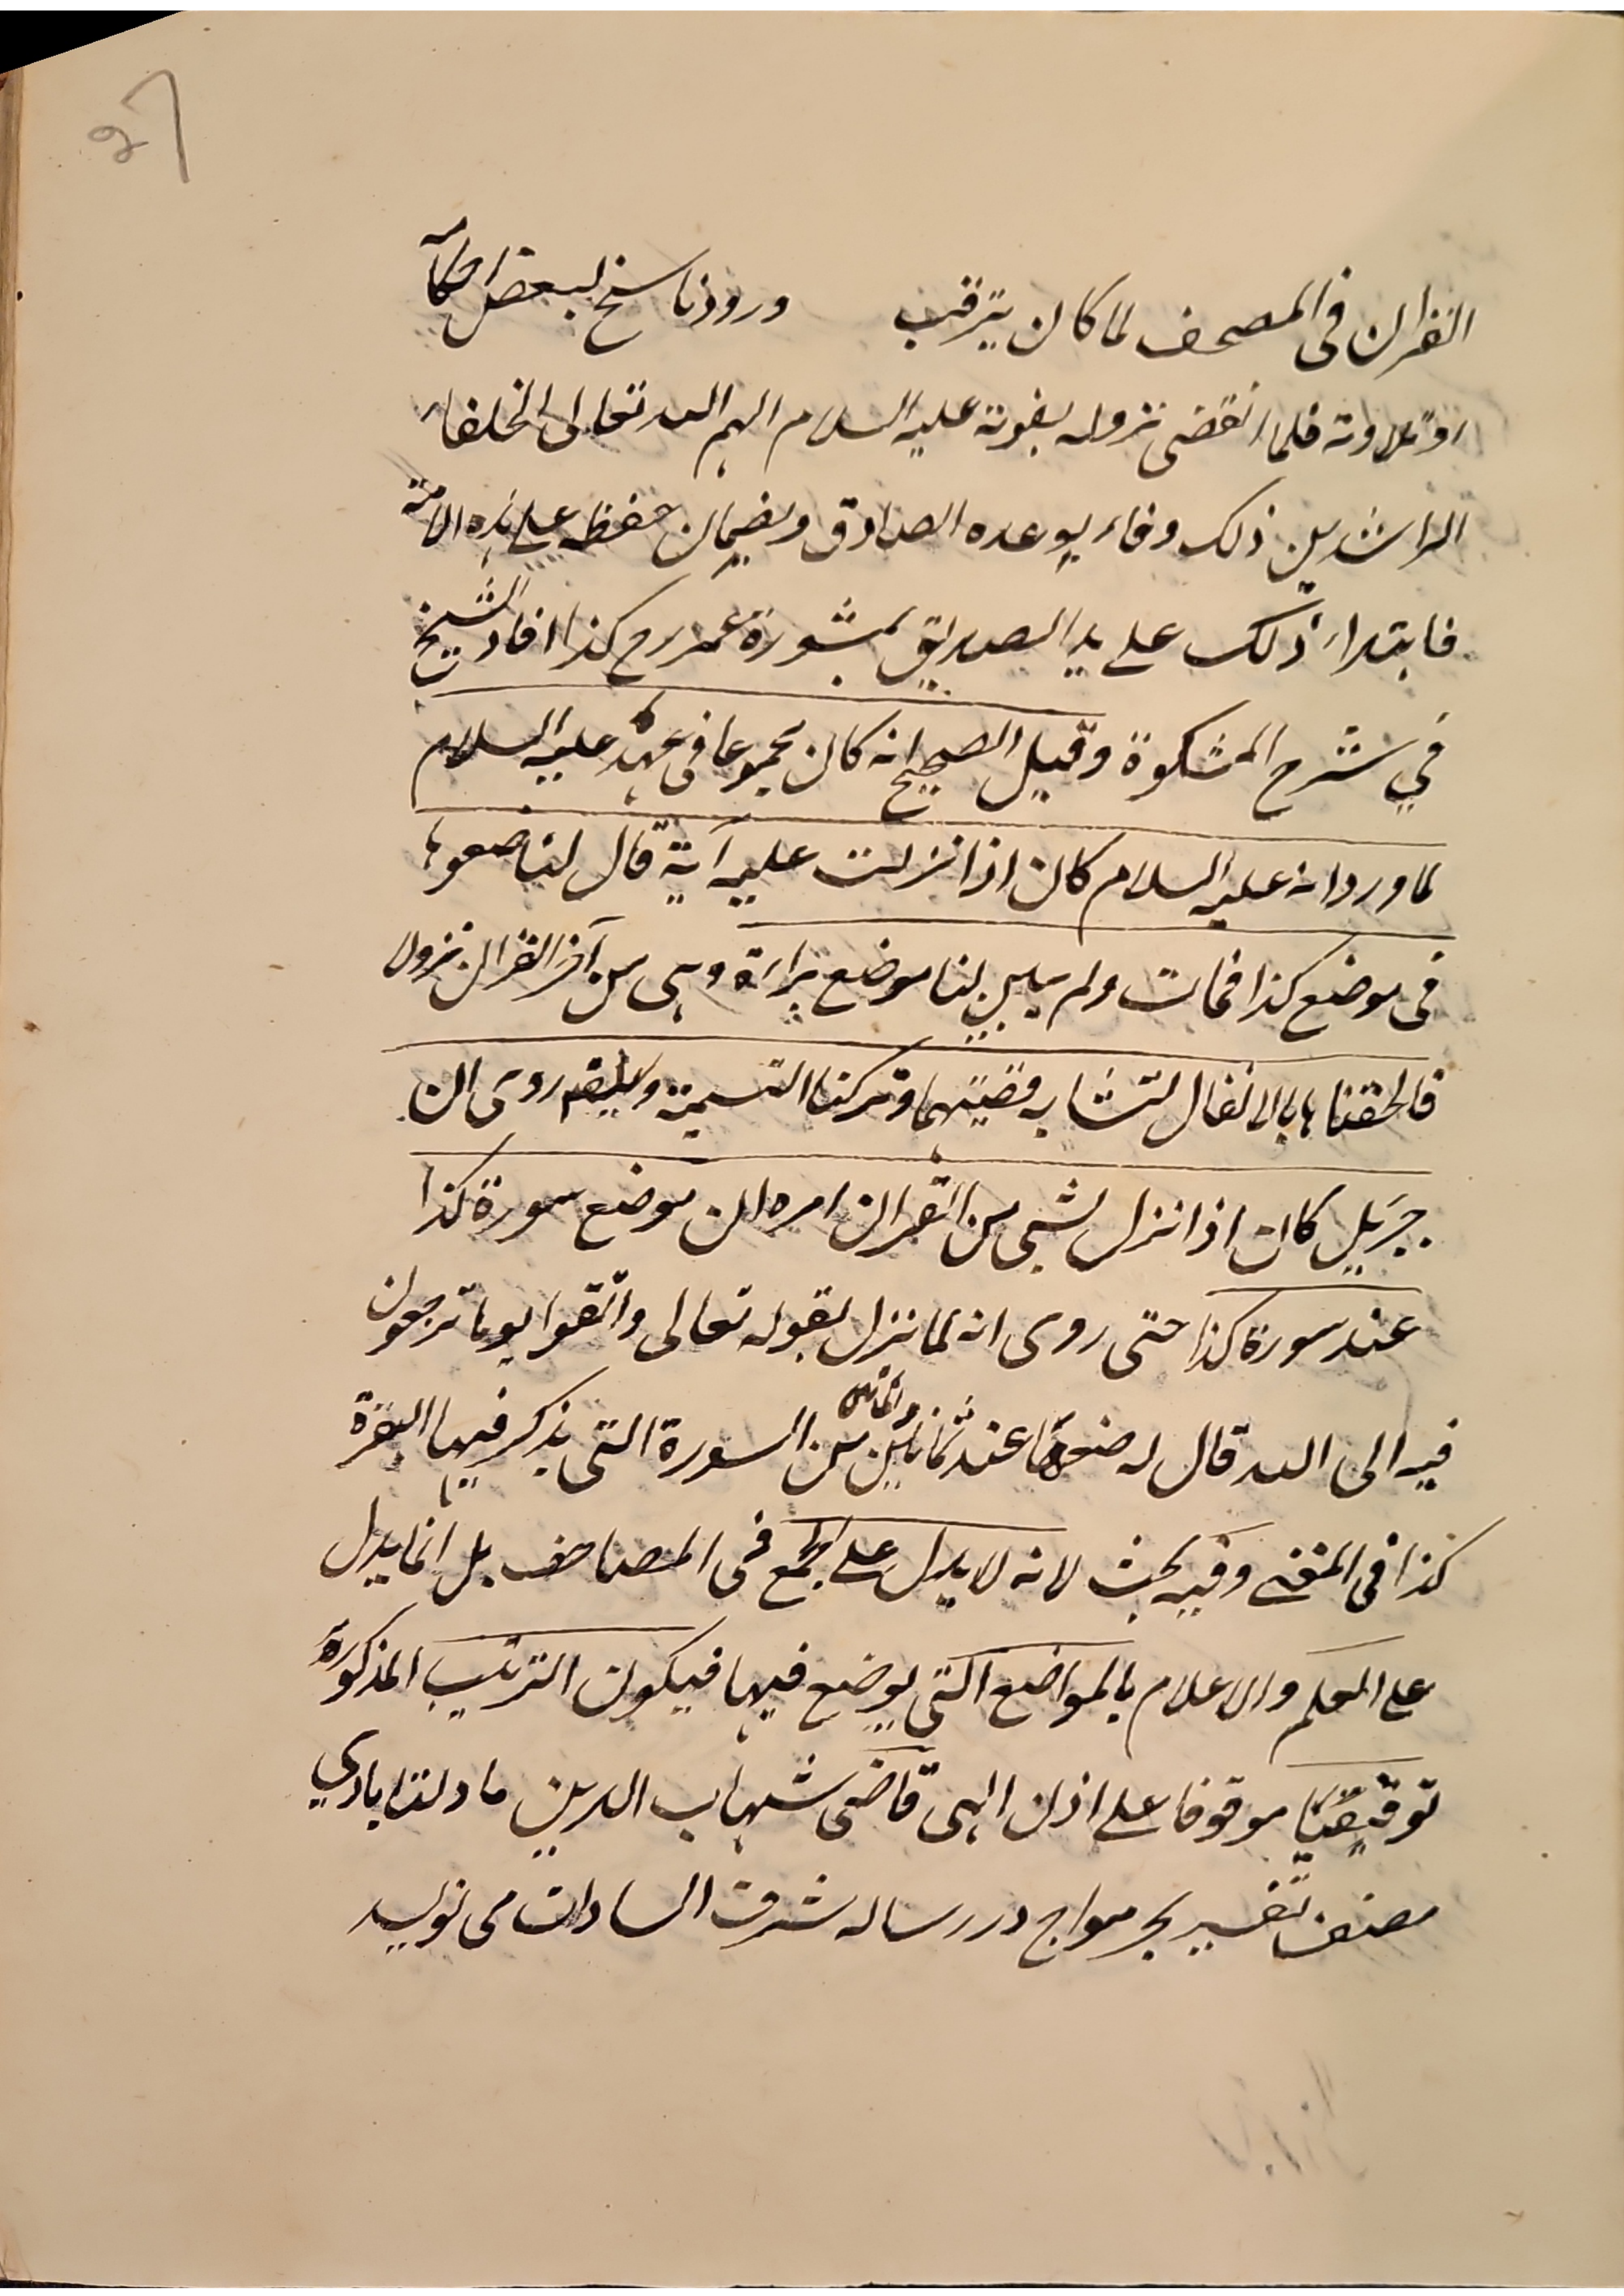 ٢٧
القرآن فی المصحف لما کان یترقب ورود ناسخ لبعض احکامه
او تلاوته فلما انقضی نزوله بفوته علیه السلام الهم الله تعالی الخلفاء
الراشدین ذلک وفاء بوعده الصادق وبضمان حفظه علی هذه الامة
فابتداء ذلک علی ید الصدیق بمشورة عمر رح کذا افاد الشیخ
في شرح المشکوة وقیل الصحیح انه کان مجموعا فی عهده علیه السلام
لما ورد انه علیه السلام کان اذا نزلت علیه آیة قال لنا ضعوها
فی موضع کذا فمات ولم یبین لنا موضع براءة وهی من آخر القرآن نزولا
فالحقناها بالانفال لتشابه قصتهما وترکنا التسمیة روی ان
جبرئیل کان اذا نزل بشی من القرآن امره ان موضع سورة کذا
عند سورة کذا حتی روی انه لما نزل بقوله تعالی واتقوا یوما ترجعون
فیه الی الله قال له ضعها عند ثمانین والمائتین من السورة التی یذکر فیها البقرة
کذا فی المغنی وفیه بحث لانه لا یدل علی الجمع فی المصاحف بل انما یدل
علی العلم والاعلام بالمواضع التی یوضع فیها فیکون الترتیب المذکورة
توقیفیا موقوفا علی اذن الهی قاضی شهاب الدین ما دولتابادي
مصنف تفسیر بحر مواج در رساله شرف السادات می نویسد